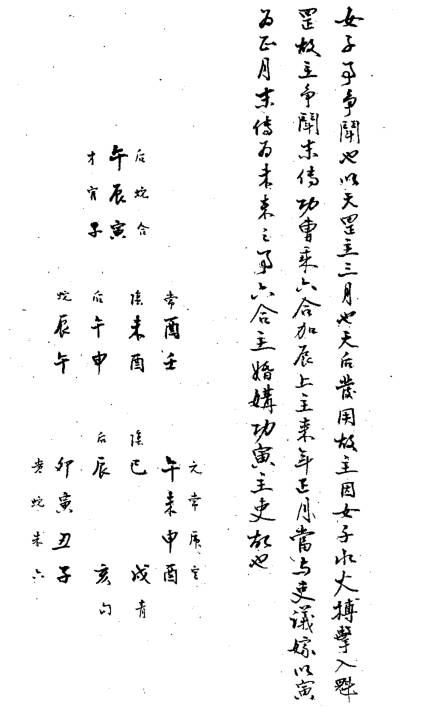 女子爭鬪也以天罡主三月也天后發用故主因女子水火搏擊入魁
罡故主爭鬪末傳功曹乘六合加辰上主來年正月當与吏議嫁以寅
为正月末傳为未來之事六合主婚媾功寅主吏故也
后蛇合
午辰寅
才官子
常酉壬
陰未酉
后午申
蛇辰午
元常虎空
午未申酉
陰巳 戌青
后辰 亥勾
卯寅丑子
贵蛇朱六